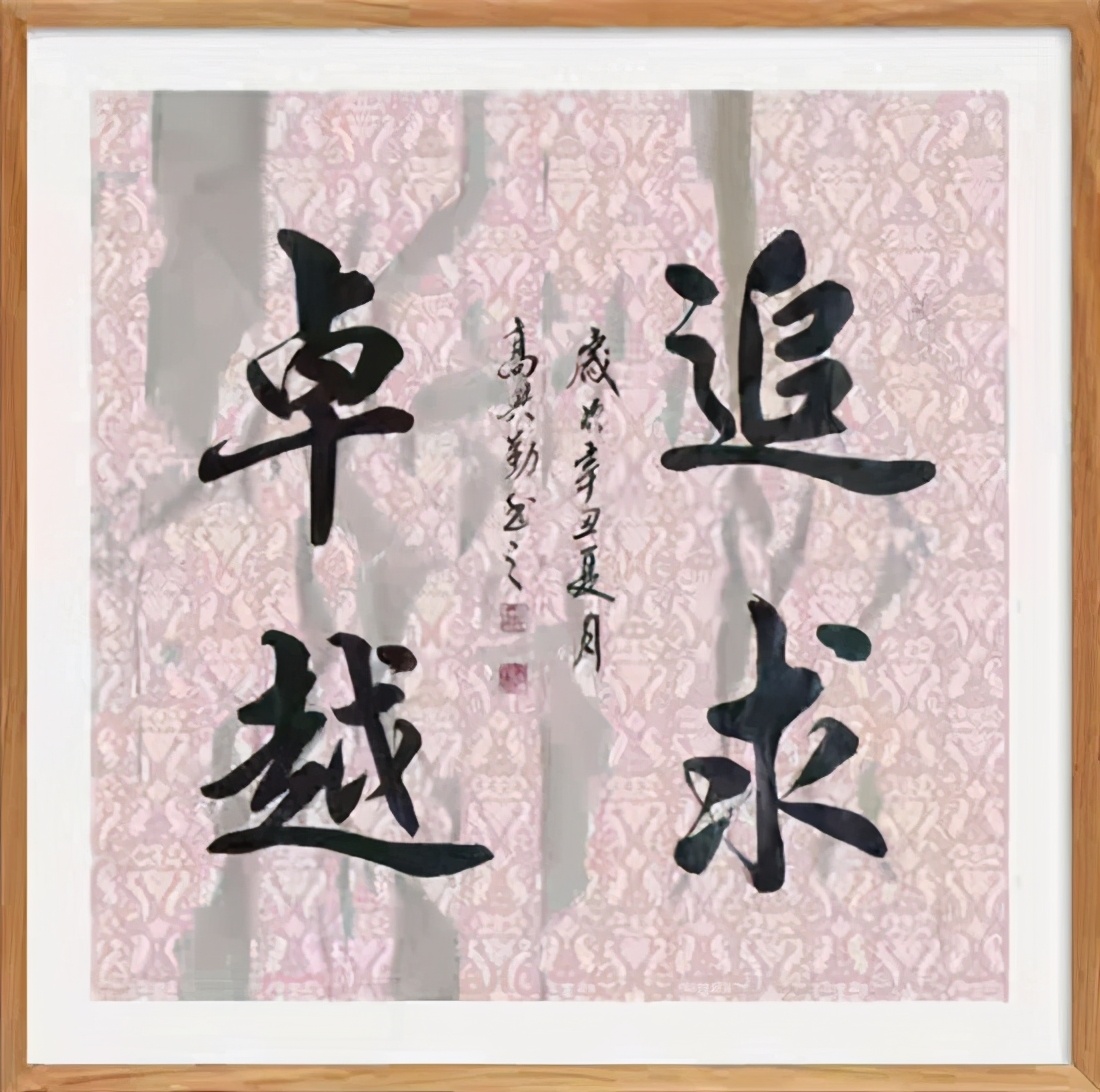 追求
卓越
歲次辛丑夏月
高興勤書之